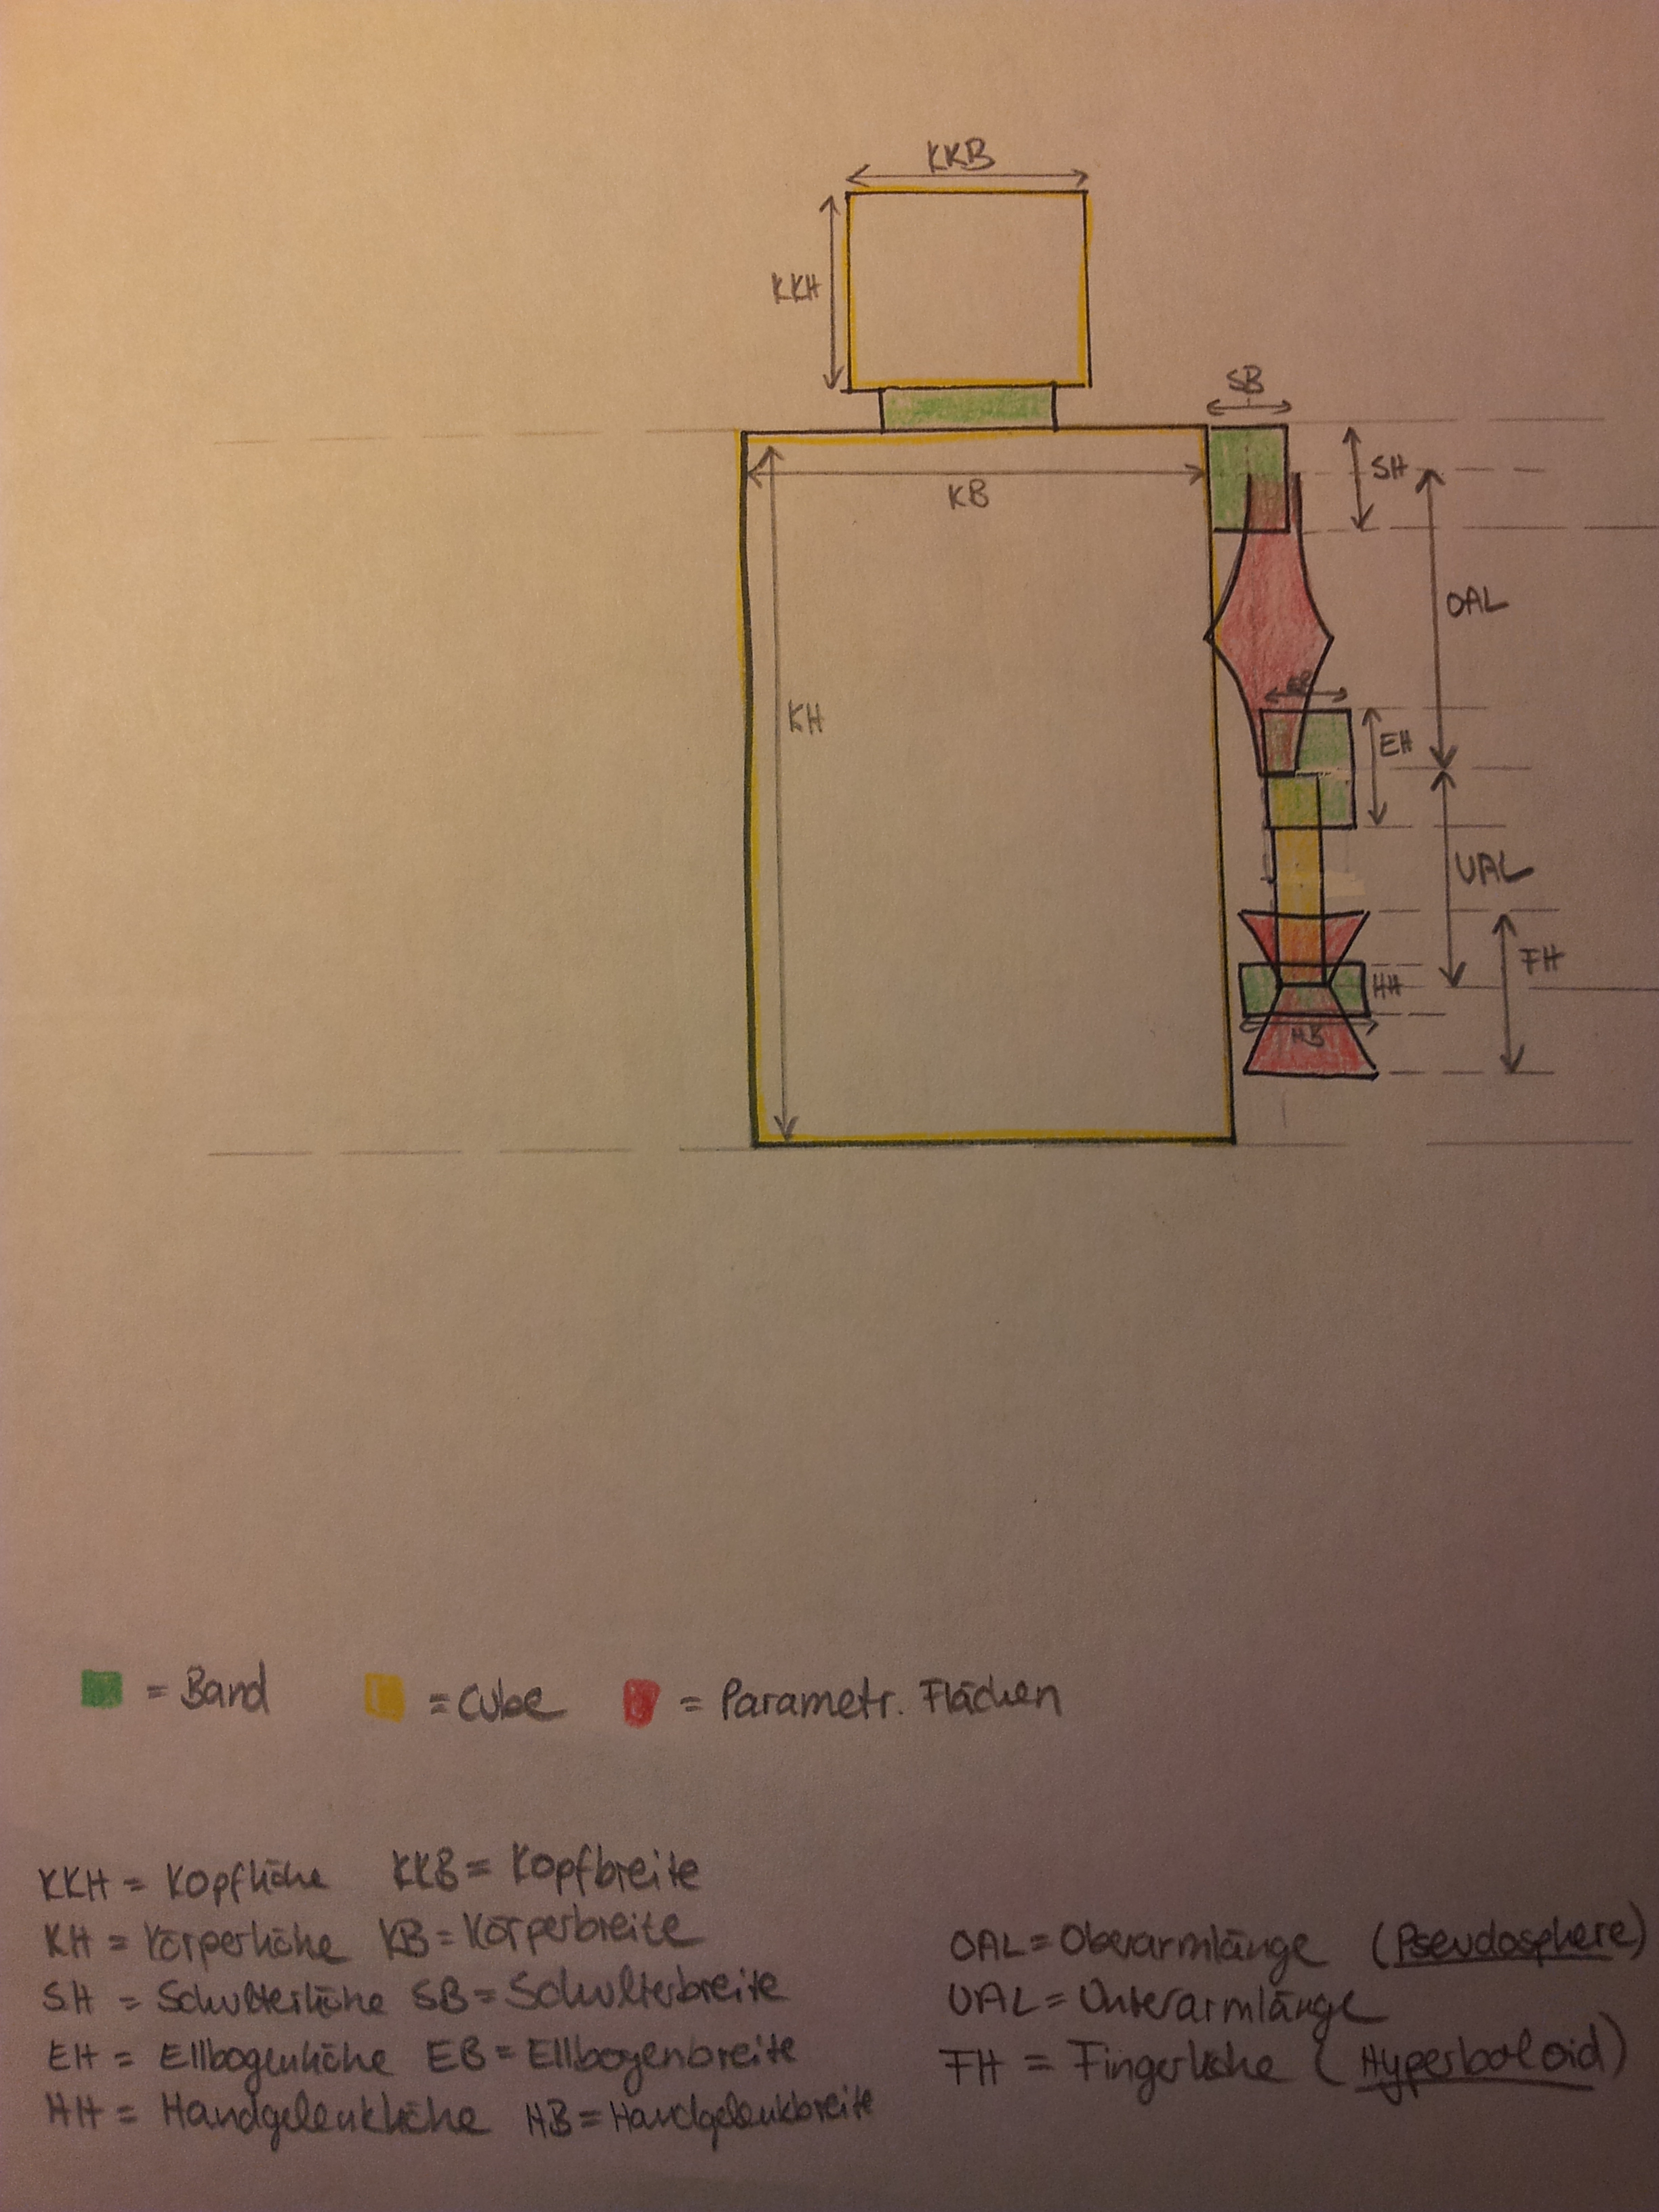 KKB
KKH
SB
SH
KB
OAL
EB
KH
EH
UAL
FH
HH
HB
= Band = Cube = Parametr. Flächen
KKH = Kopfhöhe KKB = Kopfbreite
KH = Körperhöhe KB = Körperbreite
SH = Schulterhöhe SB = Schulterbreite
EH = Ellbogenhöhe EB = Ellbogenbreite
HH = Handgelenkhöhe HB = Handgelenkbreite
OAL = Oberarmlänge (Pseudosphere)
UAL = Unterarmlänge
FH = Fingerhöhe (Hyperboloid)